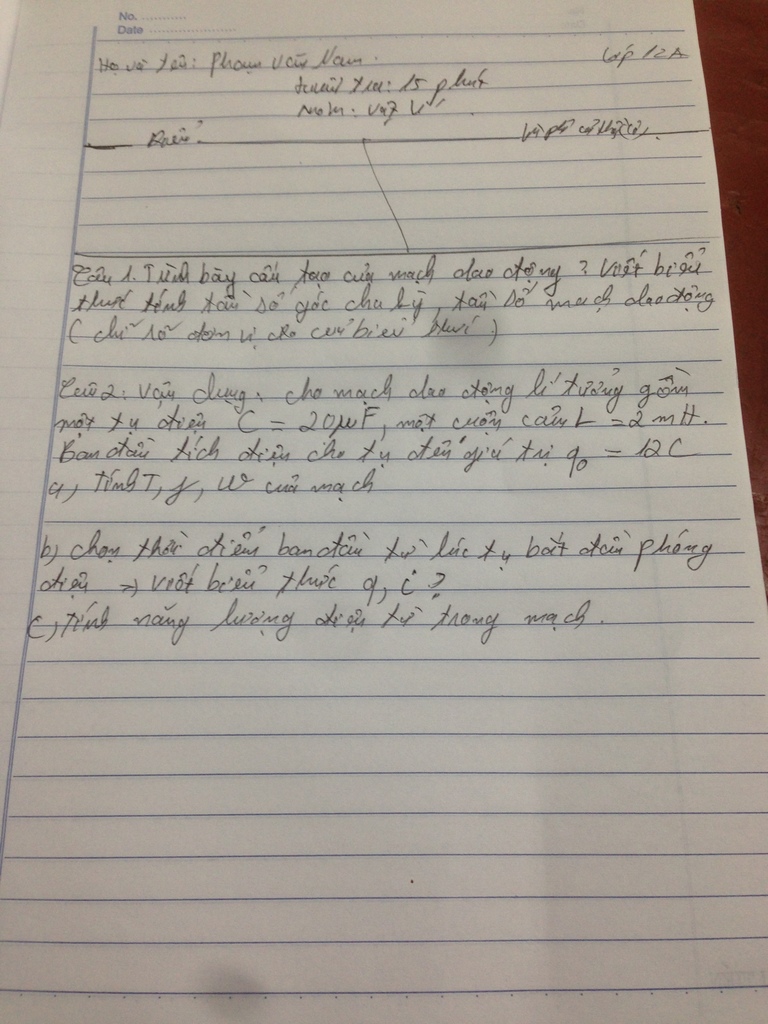 No. ............
Date .......................
Họ và tên: Phạm Văn Nam. Lớp 12A
kiểm tra: 15 phút
Môn: Vật lí
Điểm.
Câu 1. Trình bày cấu tạo của mạch dao động? Viết biểu
thức tính tần số góc chu kỳ, tần số mạch dao động
(chỉ số đơn vị cho các biểu thức)
Câu 2: Vận dụng. cho mạch dao động lí tưởng gồm
một tụ điện C = 20μF, một cuộn cảm L = 2 mH.
Ban đầu tích điện cho tụ đến giá trị q₀ = 12C
a, Tính T, f, w của mạch
b) chọn thời điểm ban đầu từ lúc tụ bắt đầu phóng
điện => viết biểu thức q, i ?
c, tính năng lượng điện từ trong mạch.